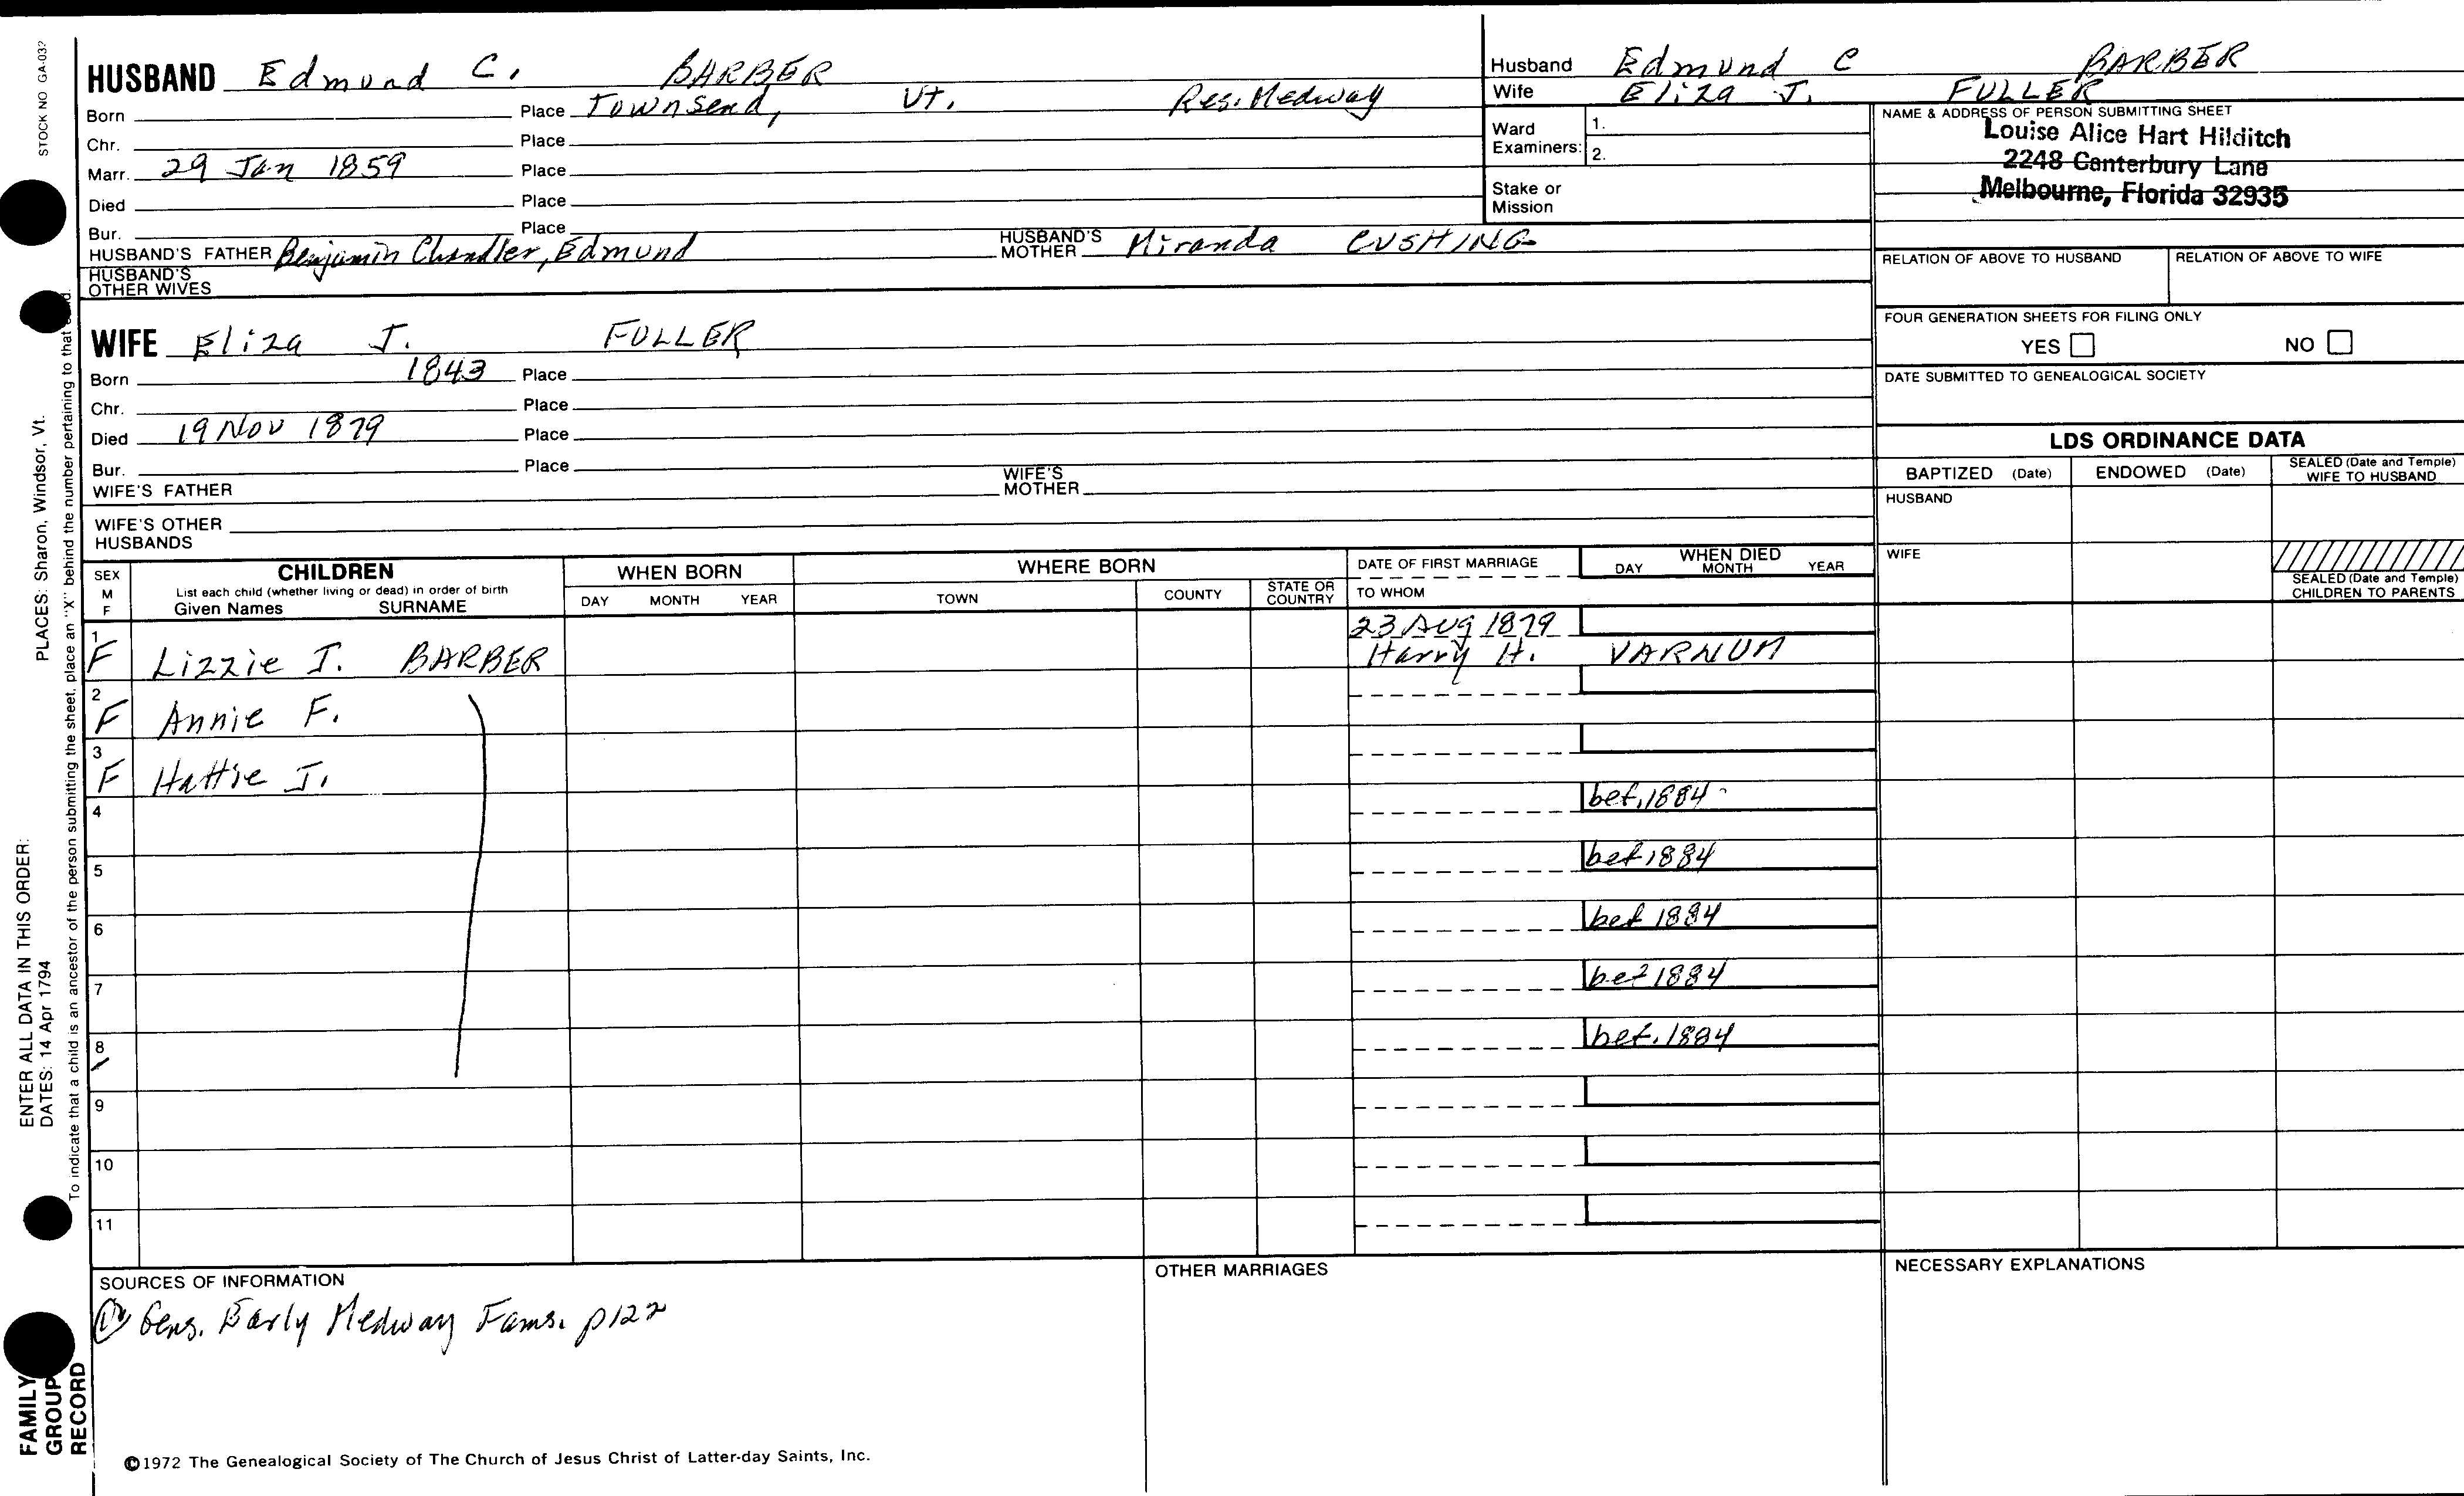 STOCK NO GA-03?
HUSBAND Edmund C. BARBER
Born Place Townsend, Vt. Res. Medway
Chr. Place
Marr. 29 Jan 1859 Place
Died Place
Bur. Place
HUSBAND'S FATHER Benjamin Chandler, Edmund HUSBAND'S MOTHER Miranda CUSHING
HUSBAND'S OTHER WIVES
WIFE Eliza J. FULLER
Born 1843 Place
Chr. Place
Died 19 Nov 1879 Place
Bur. Place
WIFE'S FATHER WIFE'S MOTHER
WIFE'S OTHER HUSBANDS
Husband Edmund C BARBER
Wife Eliza J. FULLER
Ward Examiners: 1.
2.
Stake or Mission
NAME & ADDRESS OF PERSON SUBMITTING SHEET
Louise Alice Hart Hilditch
2248 Canterbury Lane
Melbourne, Florida 32935
RELATION OF ABOVE TO HUSBAND RELATION OF ABOVE TO WIFE
FOUR GENERATION SHEETS FOR FILING ONLY
YES NO
DATE SUBMITTED TO GENEALOGICAL SOCIETY
LDS ORDINANCE DATA
BAPTIZED (Date) ENDOWED (Date) SEALED (Date and Temple) WIFE TO HUSBAND
HUSBAND
WIFE
SEALED (Date and Temple) CHILDREN TO PARENTS
SEX M F
CHILDREN
List each child (whether living or dead) in order of birth
Given Names SURNAME
WHEN BORN
DAY MONTH YEAR
WHERE BORN
TOWN COUNTY STATE OR COUNTRY
DATE OF FIRST MARRIAGE
TO WHOM
WHEN DIED
DAY MONTH YEAR
1 23 Aug 1879
F Lizzie J. BARBER Harry H. VARNUM
2
F Annie F.
3
F Hattie J.
4 bef. 1884
5 bef 1884
6 bef 1884
7 bef 1884
8 bef. 1884
9
10
11
SOURCES OF INFORMATION
(1) Gens. Early Medway Fams. p122
OTHER MARRIAGES
NECESSARY EXPLANATIONS
©1972 The Genealogical Society of The Church of Jesus Christ of Latter-day Saints, Inc.
ENTER ALL DATA IN THIS ORDER:
DATES: 14 Apr 1794 PLACES: Sharon, Windsor, Vt.
To indicate that a child is an ancestor of the person submitting the sheet, place an "X" behind the number pertaining to that
FAMILY
GROUP
RECORD